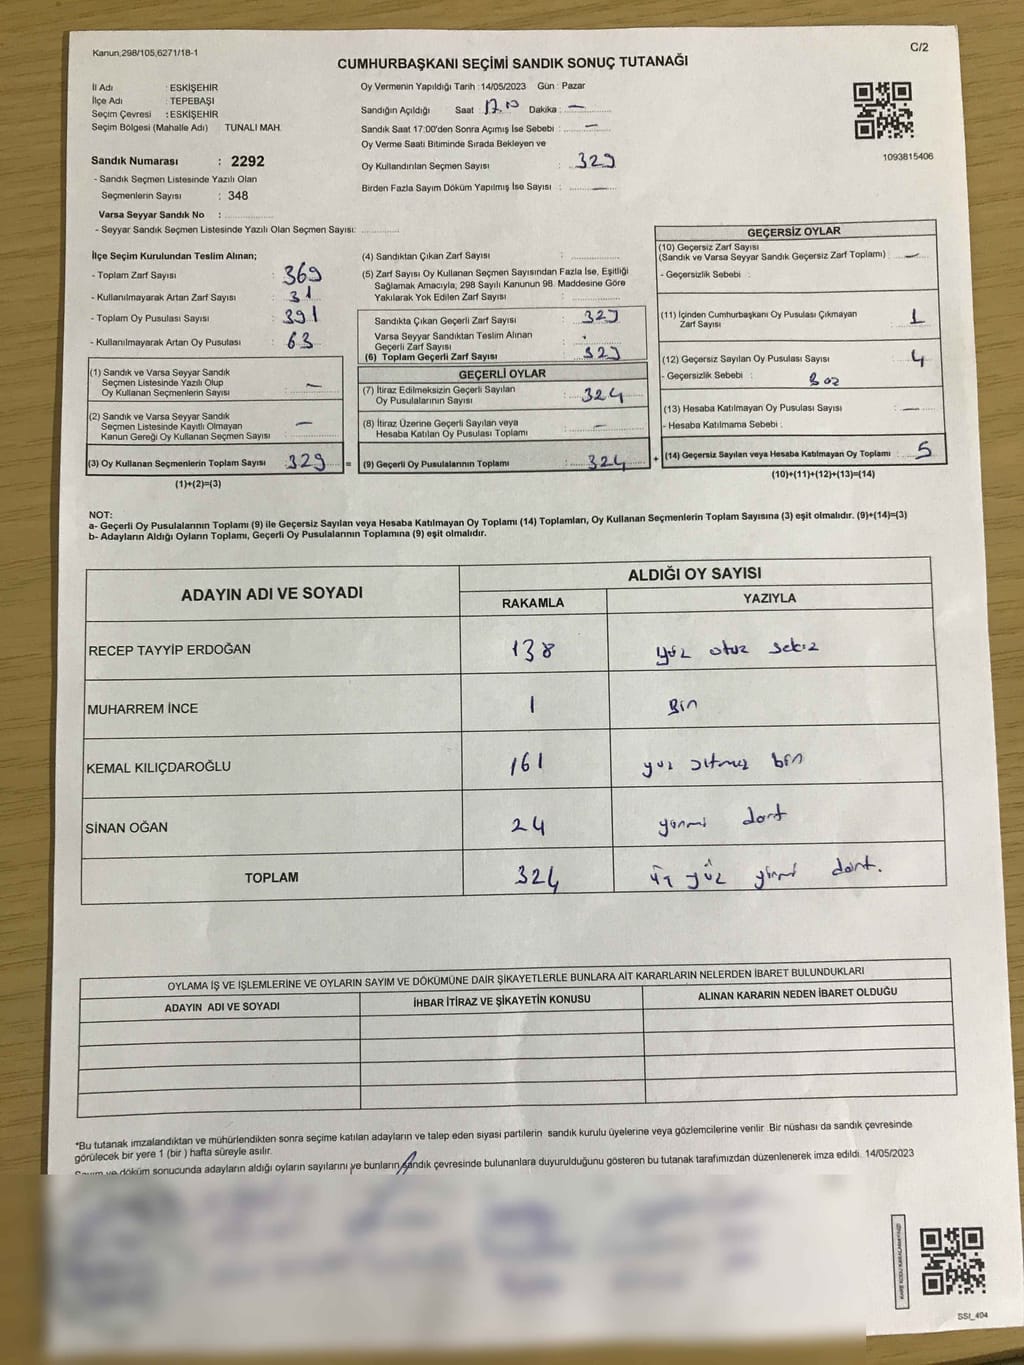 Kanun,298/105,6271/18-1
C/2
CUMHURBAŞKANI SEÇİMİ SANDIK SONUÇ TUTANAĞI
İl Adı : ESKİŞEHİR
İlçe Adı : TEPEBAŞI
Seçim Çevresi : ESKİŞEHİR
Seçim Bölgesi (Mahalle Adı) TUNALI MAH.
Sandık Numarası : 2292
- Sandık Seçmen Listesinde Yazılı Olan
Seçmenlerin Sayısı : 348
Varsa Seyyar Sandık No :
- Seyyar Sandık Seçmen Listesinde Yazılı Olan Seçmen Sayısı:
Oy Vermenin Yapıldığı Tarih :14/05/2023 Gün : Pazar
Sandığın Açıldığı Saat : 17.00 Dakika : —
Sandık Saat 17:00'den Sonra Açımış İse Sebebi : —
Oy Verme Saati Bitiminde Sırada Bekleyen ve
Oy Kullandırılan Seçmen Sayısı : 329
Birden Fazla Sayım Döküm Yapılmış İse Sayısı : —
1093815406
İlçe Seçim Kurulundan Teslim Alınan;
- Toplam Zarf Sayısı : 369
- Kullanılmayarak Artan Zarf Sayısı : 31
- Toplam Oy Pusulası Sayısı : 391
- Kullanılmayarak Artan Oy Pusulası : 63
(1) Sandık ve Varsa Seyyar Sandık
Seçmen Listesinde Yazılı Olup
Oy Kullanan Seçmenlerin Sayısı : —
(2) Sandık ve Varsa Seyyar Sandık
Seçmen Listesinde Kayıtlı Olmayan
Kanun Gereği Oy Kullanan Seçmen Sayısı : —
(3) Oy Kullanan Seçmenlerin Toplam Sayısı : 329 =
(1)+(2)=(3)
(4) Sandıktan Çıkan Zarf Sayısı :
(5) Zarf Sayısı Oy Kullanan Seçmen Sayısından Fazla İse, Eşitliği
Sağlamak Amacıyla, 298 Sayılı Kanunun 98. Maddesine Göre
Yakılarak Yok Edilen Zarf Sayısı :
Sandıkta Çıkan Geçerli Zarf Sayısı : 329
Varsa Seyyar Sandıktan Teslim Alınan
Geçerli Zarf Sayısı :
(6) Toplam Geçerli Zarf Sayısı : 329
GEÇERLİ OYLAR
(7) İtiraz Edilmeksizin Geçerli Sayılan
Oy Pusulalarının Sayısı : 324
(8) İtiraz Üzerine Geçerli Sayılan veya
Hesaba Katılan Oy Pusulası Toplamı : —
(9) Geçerli Oy Pusulalarının Toplamı : 324 +
GEÇERSİZ OYLAR
(10) Geçersiz Zarf Sayısı
(Sandık ve Varsa Seyyar Sandık Geçersiz Zarf Toplamı) : —
- Geçersizlik Sebebi :
(11) İçinden Cumhurbaşkanı Oy Pusulası Çıkmayan
Zarf Sayısı : 1
(12) Geçersiz Sayılan Oy Pusulası Sayısı : 4
- Geçersizlik Sebebi :
(13) Hesaba Katılmayan Oy Pusulası Sayısı : —
- Hesaba Katılmama Sebebi :
(14) Geçersiz Sayılan veya Hesaba Katılmayan Oy Toplamı : 5
(10)+(11)+(12)+(13)=(14)
NOT:
a- Geçerli Oy Pusulalarının Toplamı (9) ile Geçersiz Sayılan veya Hesaba Katılmayan Oy Toplamı (14) Toplamları, Oy Kullanan Seçmenlerin Toplam Sayısına (3) eşit olmalıdır. (9)+(14)=(3)
b- Adayların Aldığı Oyların Toplamı, Geçerli Oy Pusulalarının Toplamına (9) eşit olmalıdır.
ADAYIN ADI VE SOYADI
ALDIĞI OY SAYISI
RAKAMLA YAZIYLA
RECEP TAYYİP ERDOĞAN 138 yüz otuz sekiz
MUHARREM İNCE 1 Bir
KEMAL KILIÇDAROĞLU 161 yüz altmış bir
SİNAN OĞAN 24 yirmi dört
TOPLAM 324 üç yüz yirmi dört.
OYLAMA İŞ VE İŞLEMLERİNE VE OYLARIN SAYIM VE DÖKÜMÜNE DAİR ŞİKAYETLERLE BUNLARA AİT KARARLARIN NELERDEN İBARET BULUNDUKLARI
ADAYIN ADI VE SOYADI İHBAR İTİRAZ VE ŞİKAYETİN KONUSU ALINAN KARARIN NEDEN İBARET OLDUĞU
*Bu tutanak imzalandıktan ve mühürlendikten sonra seçime katılan adayların ve talep eden siyasi partilerin sandık kurulu üyelerine veya gözlemcilerine verilir. Bir nüshası da sandık çevresinde
görülecek bir yere 1 (bir ) hafta süreyle asılır.
Sayım ve döküm sonucunda adayların aldığı oyların sayılarını ve bunların sandık çevresinde bulunanlara duyurulduğunu gösteren bu tutanak tarafımızdan düzenlenerek imza edildi. 14/05/2023
SSI_494